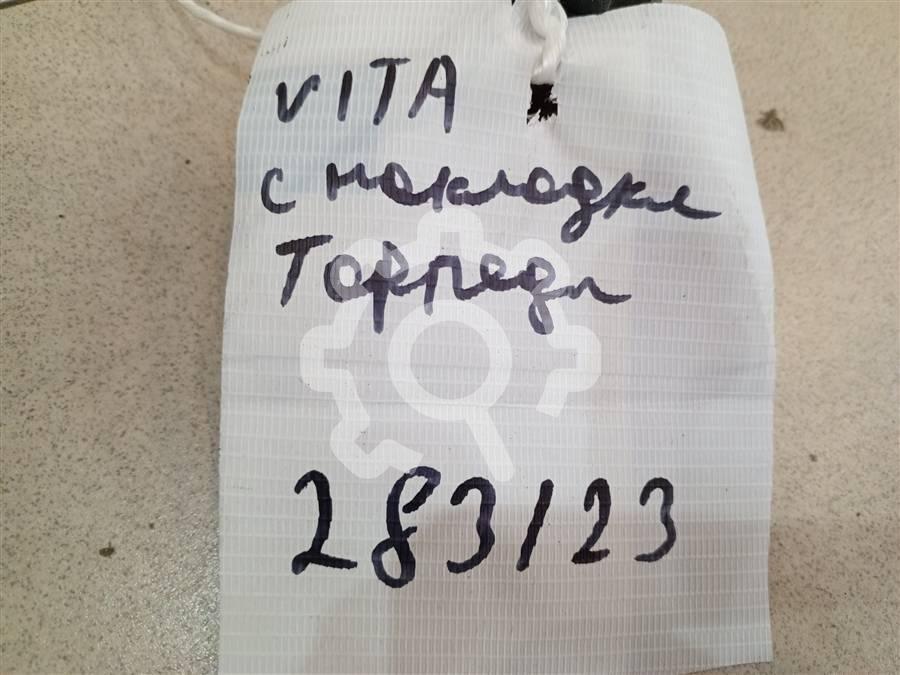 VITA
с накладки
Торпеды
283123